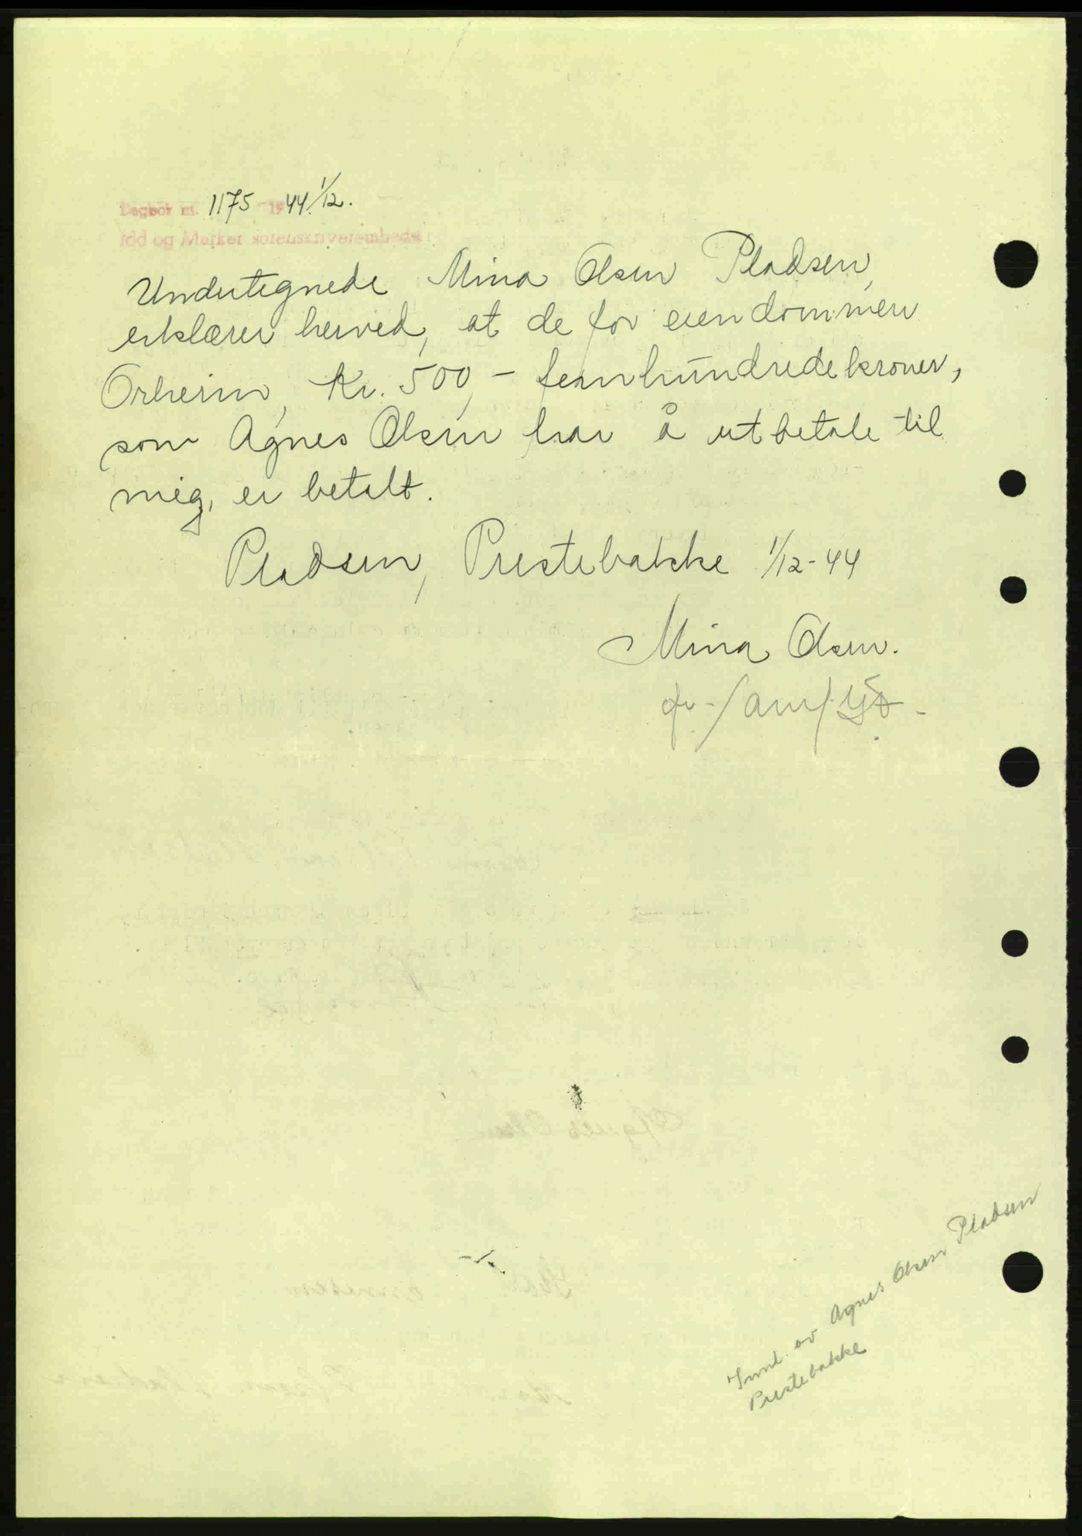 Dagbok nr. 1175 1944 1/12.
Idd og Marker sorenskriverembede
Undertegnede Mina Olsen Pladsen,
erklærer herved, at de for eiendommen
Orheim, Kr. 500,- femhundredekroner,
som Agnes Olsen har å utbetale til
mig, er betalt.
Pladsen, Prestebakke 1/12-44
Mina Olsen.
Innl. av Agnes Olsen Pladsen
Prestebakke